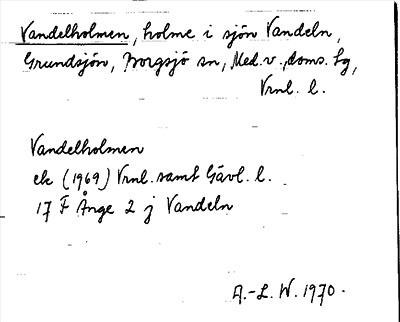 Vandelholmen, holme i sjön Vandeln,
Grundsjön, Borgsjö sn, Med.v., doms. tg,
Vrnl. l.
Vandelholmen
ek (1969) Vrnl. samt Gävl. l.
17 F Ånge 2 j Vandeln
A.-L. W. 1970.